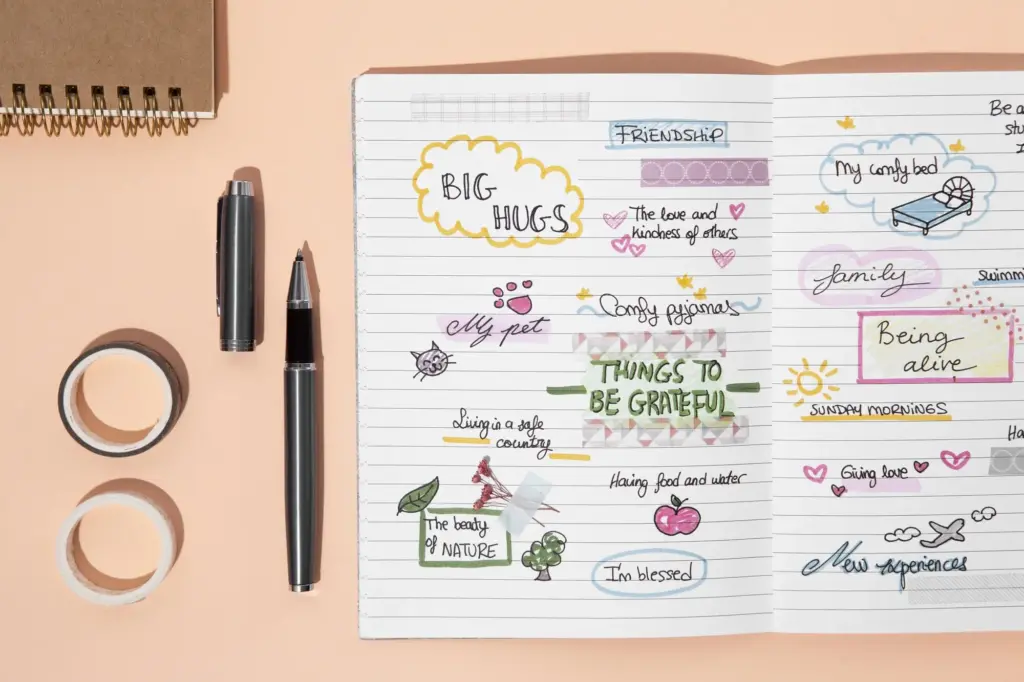 FRIENDSHIP
BIG
HUGS
The love and
kindness of others
My pet
Comfy pyjamas
THINGS TO
BE GRATEFUL
Living in a safe
country
Having food and water
The beaty
of NATURE
I'm blessed
Be
My comfy bed
family
Being
alive
SUNDAY MORNINGS
Giving love
New experiences